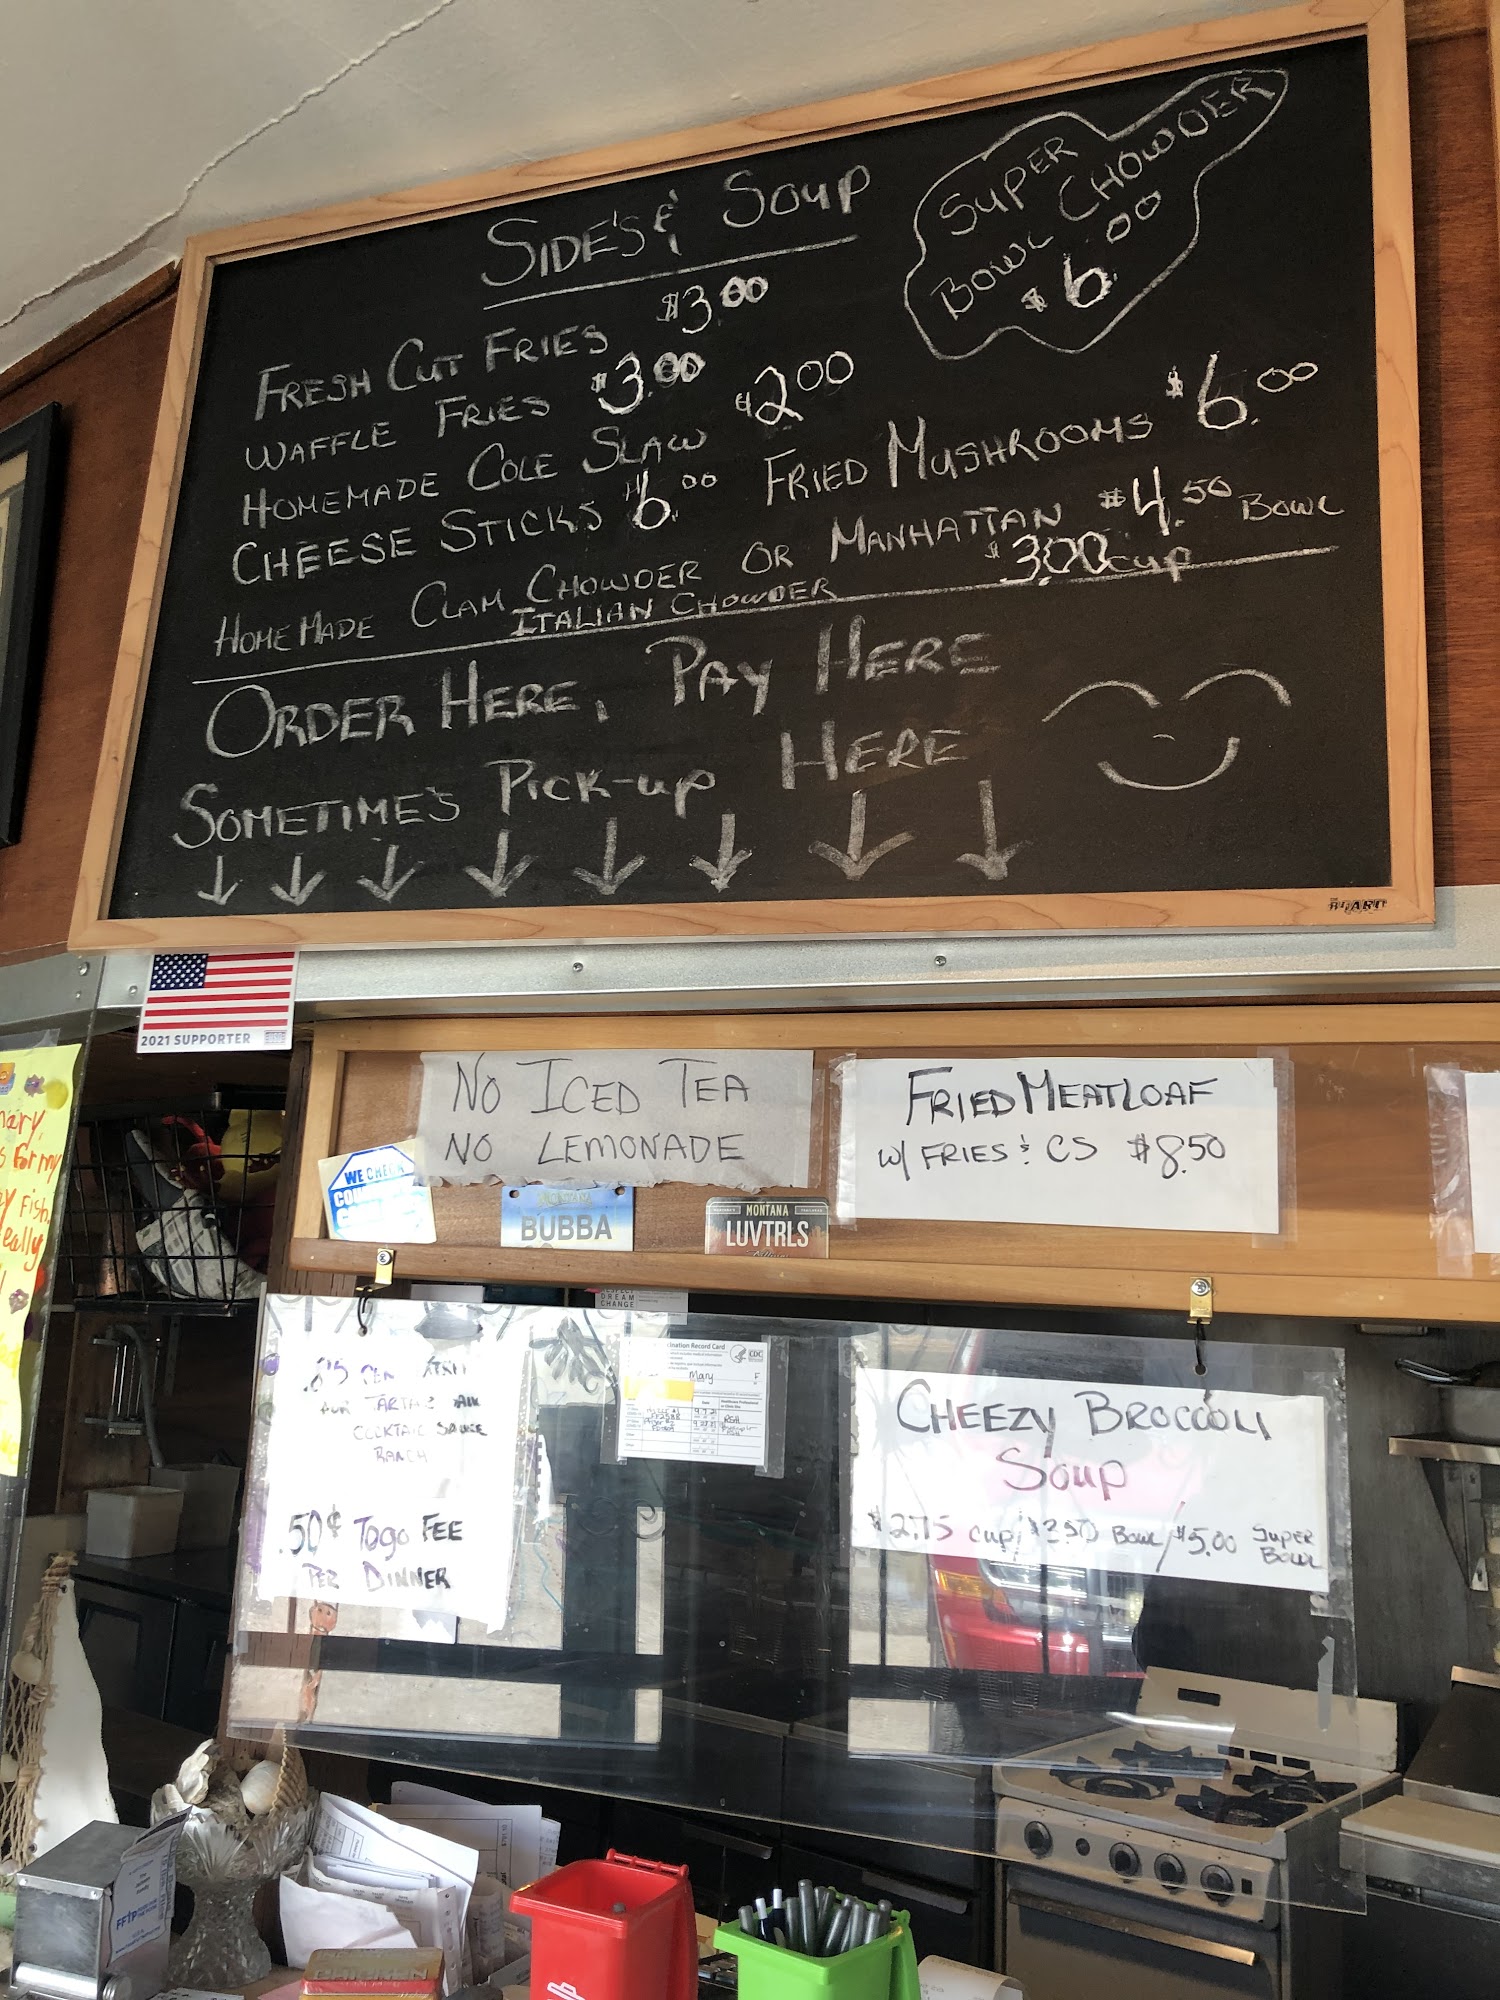 SUPER
BOWL CHOWDER
$6.00
SIDE'S & SOUP
FRESH CUT FRIES $3.00
WAFFLE FRIES $3.00
HOMEMADE COLE SLAW $2.00
CHEESE STICKS $6.00 FRIED MUSHROOMS $6.00
HOMEMADE CLAM CHOWDER OR MANHATTAN $4.50 BOWL
ITALIAN CHOWDER $3.00 cup
ORDER HERE, PAY HERE
SOMETIME'S PICK-UP HERE
2021 SUPPORTER
NO ICED TEA
NO LEMONADE
FRIED MEATLOAF
W/ FRIES & CS $8.50
WE CHECK
BUBBA
MONTANA
LUVTRLS
DREAM
CHANGE
TARTAR
COCKTAIL SAUCE
RANCH
.50¢ TOGO FEE
PER DINNER
Record Card
CDC
Mary
CHEEZY BROCCOLI
SOUP
$2.75 cup/$3.50 BOWL/$5.00 SUPER
BOWL
FFTP